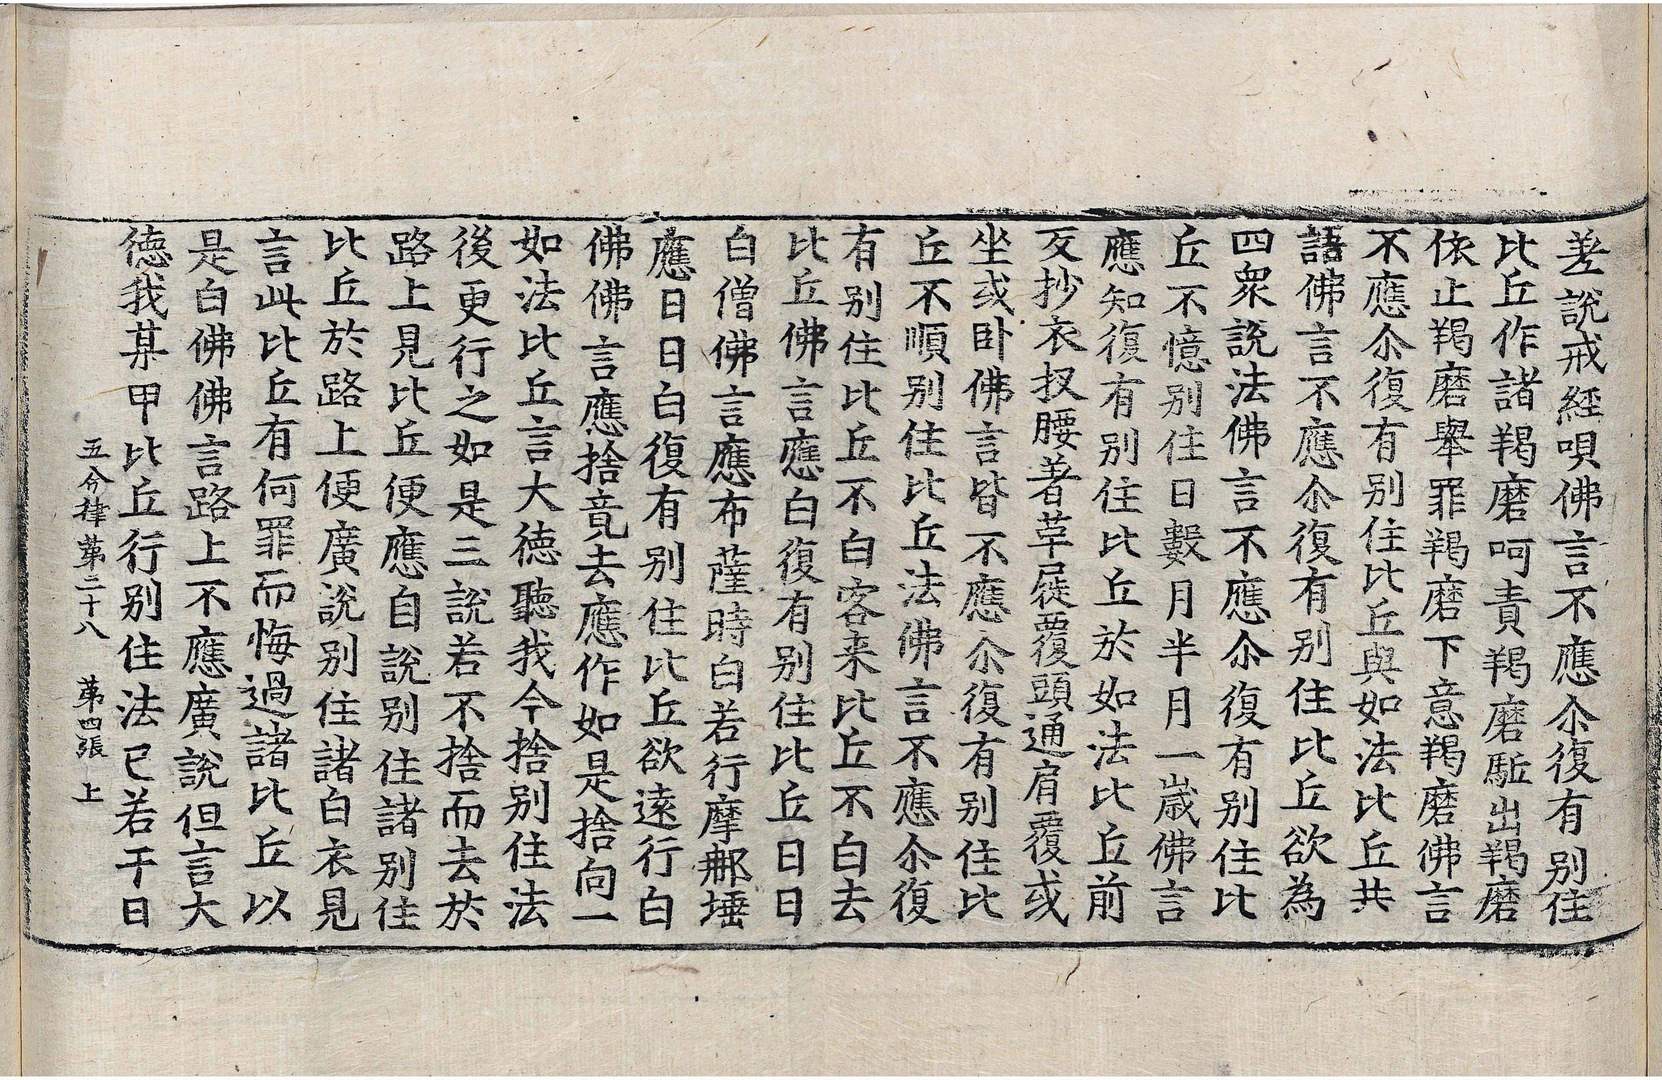 差說戒經唄佛言不應尒復有別住
比丘作諸羯磨呵責羯磨駈出羯磨
依止羯磨舉罪羯磨下意羯磨佛言
不應尒復有別住比丘與如法比丘共
語佛言不應尒復有別住比丘欲為
四眾說法佛言不應尒復有別住比
丘不憶別住日數月半月一歲佛言
應知復有別住比丘於如法比丘前
反抄衣扠腰著革屣覆頭通肩覆或
坐或臥佛言皆不應尒復有別住比
丘不順別住比丘法佛言不應尒復
有別住比丘不白客来比丘不白去
比丘佛言應白復有別住比丘日日
白僧佛言應布薩時白若行摩那埵
應日日白復有別住比丘欲遠行白
佛佛言應捨竟去應作如是捨向一
如法比丘言大德聽我今捨別住法
後更行之如是三說若不捨而去於
路上見比丘便應自說別住諸別住
比丘於路上便廣說別住諸白衣見
言此比丘有何罪而悔過諸比丘以
是白佛佛言路上不應廣說但言大
德我某甲比丘行別住法已若干日
五分律第二十八 第四張 上